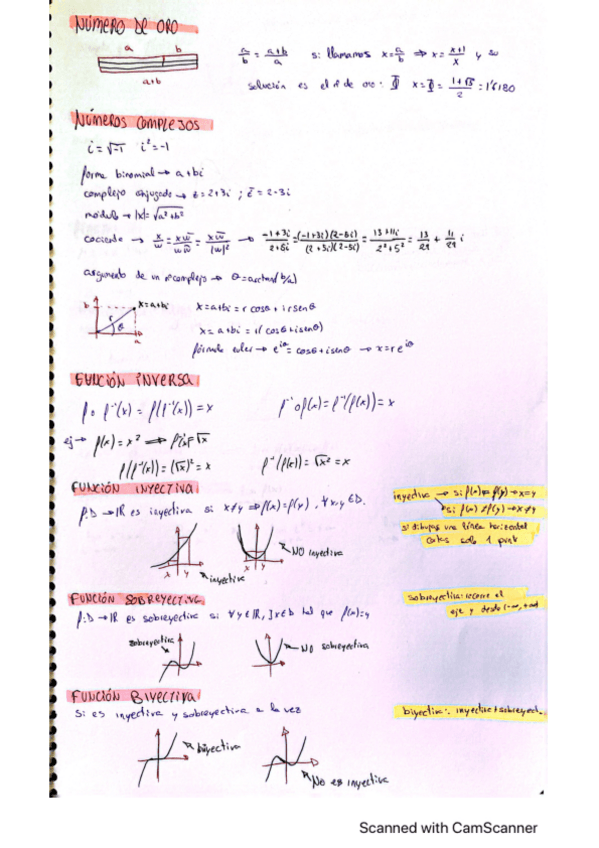 NÚMERO DE ORO
a b
a+b
a/b = a+b/a si llamamos x = a/b ⇒ x = x+1/x y su
solución es el nº de oro: Φ x = Φ = 1+√5/2 = 1'6180
NÚMEROS COMPLEJOS
i = √-1 i² = -1
forma binomial → a+bi
complejo conjugado → z = 2+3i ; z̄ = 2-3i
módulo → |x| = √a²+b²
cociente → x/w = x w̄/w w̄ = x w̄/|w|² → -1+3i/2+5i = (-1+3i)(2-5i)/(2+5i)(2-5i) = 13+11i/2²+5² = 13/29 + 11/29 i
argumento de un nº complejo → θ = arctan(b/a)
b x=a+bi
r θ
a
x = a+bi = r cosθ + i r senθ
x = a+bi = r(cosθ + i senθ)
fórmula euler → e^iθ = cosθ + i senθ → x = r e^iθ
FUNCIÓN INVERSA
f∘f⁻¹(x) = f(f⁻¹(x)) = x f⁻¹∘f(x) = f⁻¹(f(x)) = x
ej → f(x) = x² ⇒ f⁻¹(x) = √x
f(f⁻¹(x)) = (√x)² = x f⁻¹(f(x)) = √x² = x
FUNCIÓN INYECTIVA
f: D → ℝ es inyectiva si x≠y ⇒ f(x)≠f(y), ∀x,y ∈ D.
inyectiva → si f(x)=f(y) → x=y
si f(x)≠f(y) → x≠y
si dibujas una línea horizontal
cortas solo 1 punto
x y
inyectiva
NO inyectiva
FUNCIÓN SOBREYECTIVA
f: D → ℝ es sobreyectiva si ∀y∈ℝ, ∃x∈D tal que f(x)=y
sobreyectiva: recorre el
eje y desde (-∞, +∞)
sobreyectiva
NO sobreyectiva
FUNCIÓN BIYECTIVA
Si es inyectiva y sobreyectiva a la vez
biyectiva: inyectiva+sobreyect.
biyectiva
No es inyectiva
Scanned with CamScanner